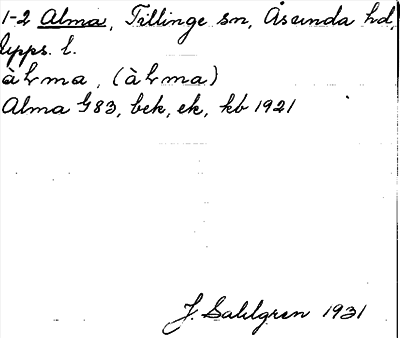 1-2 Alma, Tillinge sn, Åsunda hd,
Upps. l.
àlma, (àlma)
Alma G83, bek, ek, kb 1921
J. Sahlgren 1931